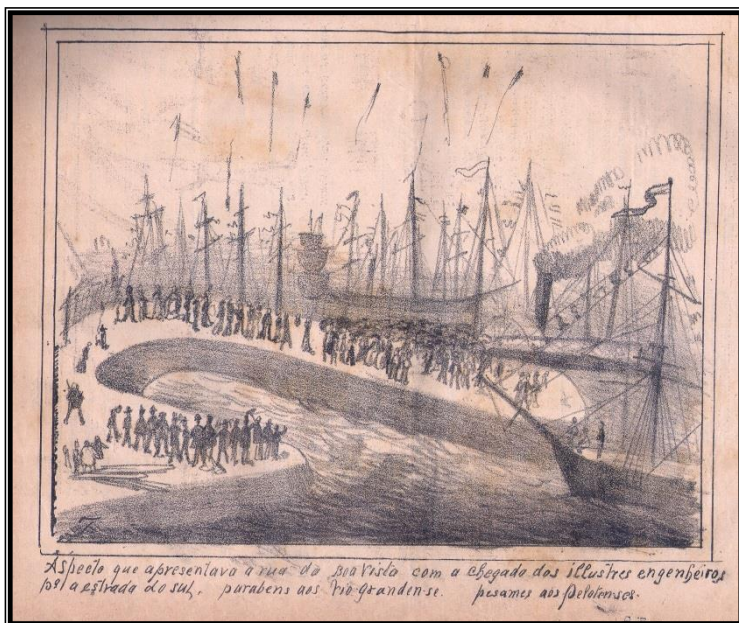 Aspecto que apresentava a rua da Boa Vista com a chegada dos illustres engenheiros
pª a estrada do sul, parabens aos Rio-Grandense. pesames aos Pelotenses.